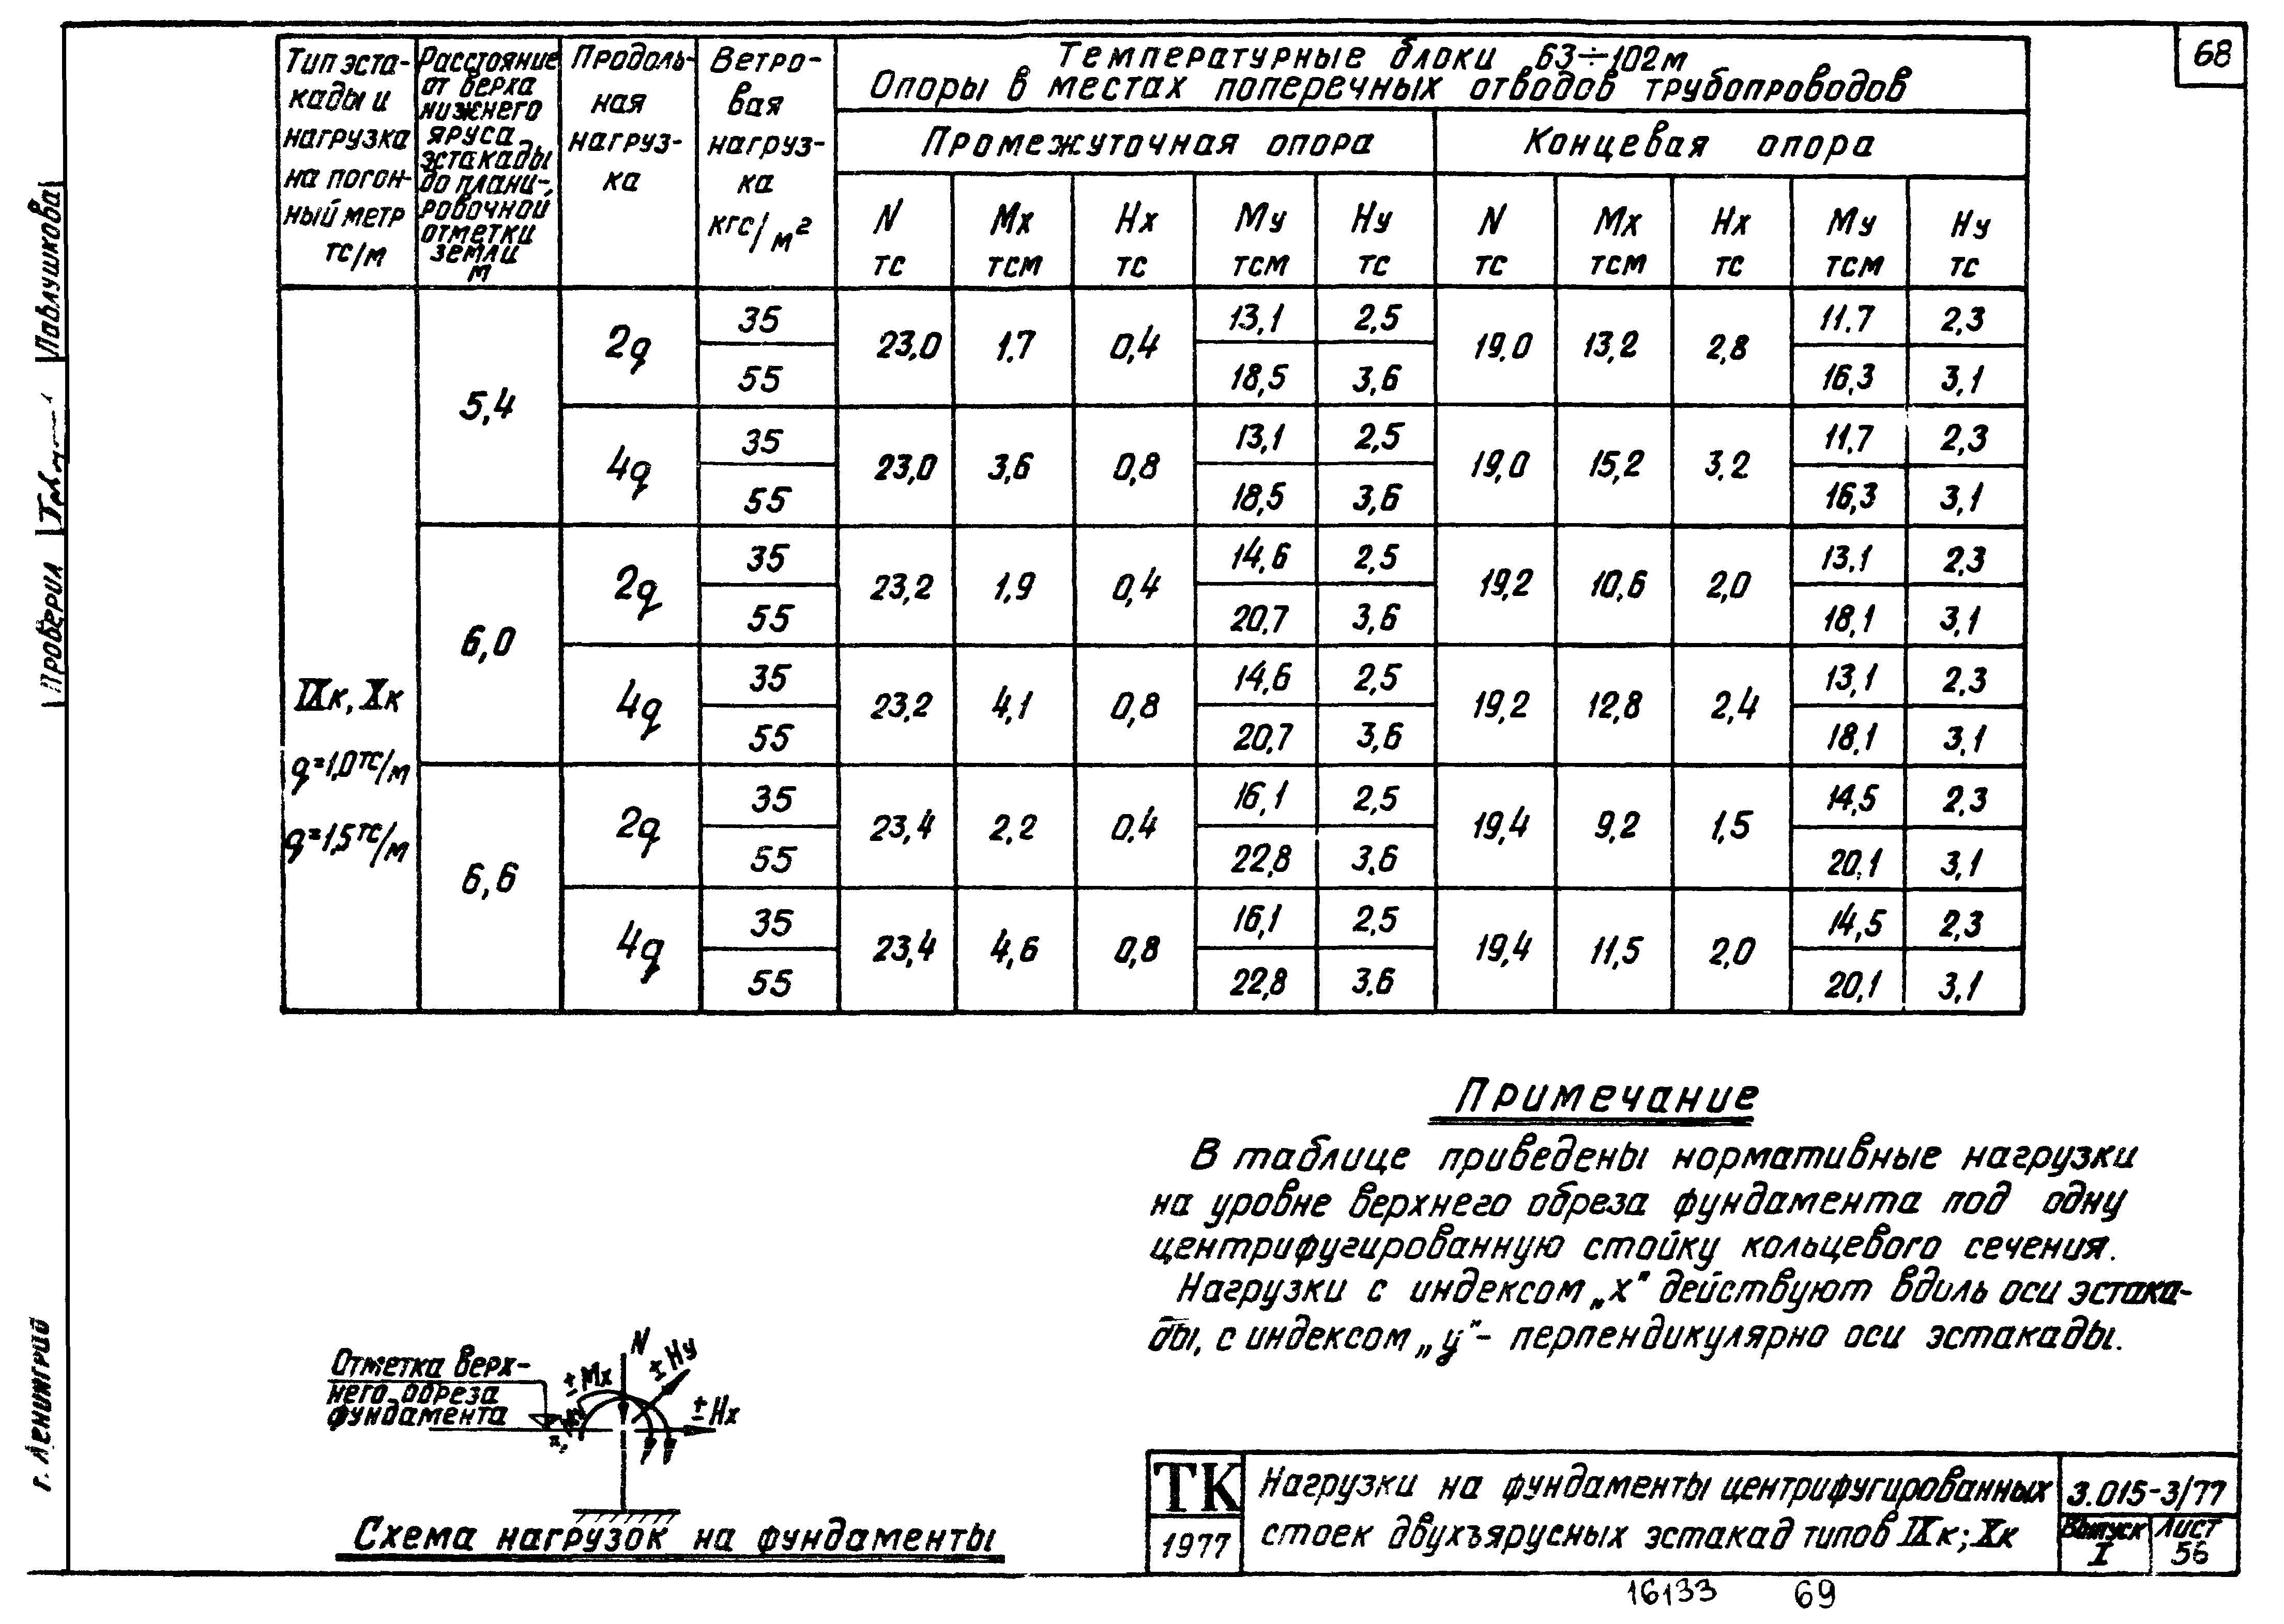 68
Температурные блоки 63÷102м
Опоры в местах поперечных отводов трубопроводов
Тип эста-
кады и
нагрузка
на погон-
ный метр
тс/м
Расстояние
от верха
нижнего
яруса
эстакады
до плани-
ровочной
отметки
земли
м
Продоль-
ная
нагруз-
ка
Ветро-
вая
нагруз-
ка
кгс/м²
Промежуточная опора Концевая опора
N Mх Hх Mу Hу N Mх Hх Mу Hу
тс тсм тс тсм тс тс тсм тс тсм тс
IXк, Xк
q=1,0тс/м
q=1,5тс/м
5,4 2q 35 23,0 1,7 0,4 13,1 2,5 19.0 13,2 2,8 11.7 2,3
55 18,5 3,6 16,3 3,1
4q 35 23,0 3,6 0,8 13,1 2,5 19,0 15,2 3,2 11,7 2,3
55 18,5 3,6 16,3 3,1
6,0 2q 35 23,2 1,9 0,4 14,6 2,5 19,2 10,6 2,0 13,1 2,3
55 20,7 3,6 18,1 3,1
4q 35 23,2 4,1 0,8 14,6 2,5 19,2 12,8 2,4 13,1 2,3
55 20,7 3,6 18,1 3,1
6,6 2q 35 23,4 2,2 0,4 16,1 2,5 19,4 9,2 1,5 14,5 2,3
55 22,8 3,6 20,1 3,1
4q 35 23,4 4,6 0,8 16,1 2,5 19,4 11,5 2,0 14,5 2,3
55 22,8 3,6 20,1 3,1
Примечание
В таблице приведены нормативные нагрузки
на уровне верхнего обреза фундамента под одну
центрифугированную стойку кольцевого сечения.
Нагрузки с индексом „х" действуют вдоль оси эстака-
ды, с индексом „у"- перпендикулярно оси эстакады.
Отметка верх-
него обреза
фундамента
N
±Mх
±Hу
±Hх
Схема нагрузок на фундаменты
ТК
1977
Нагрузки на фундаменты центрифугированных
стоек двухъярусных эстакад типов IXк; Xк
3.015-3/77
Выпуск
I
Лист
56
16133 69
Проверил Павлушкова
г. Ленинград